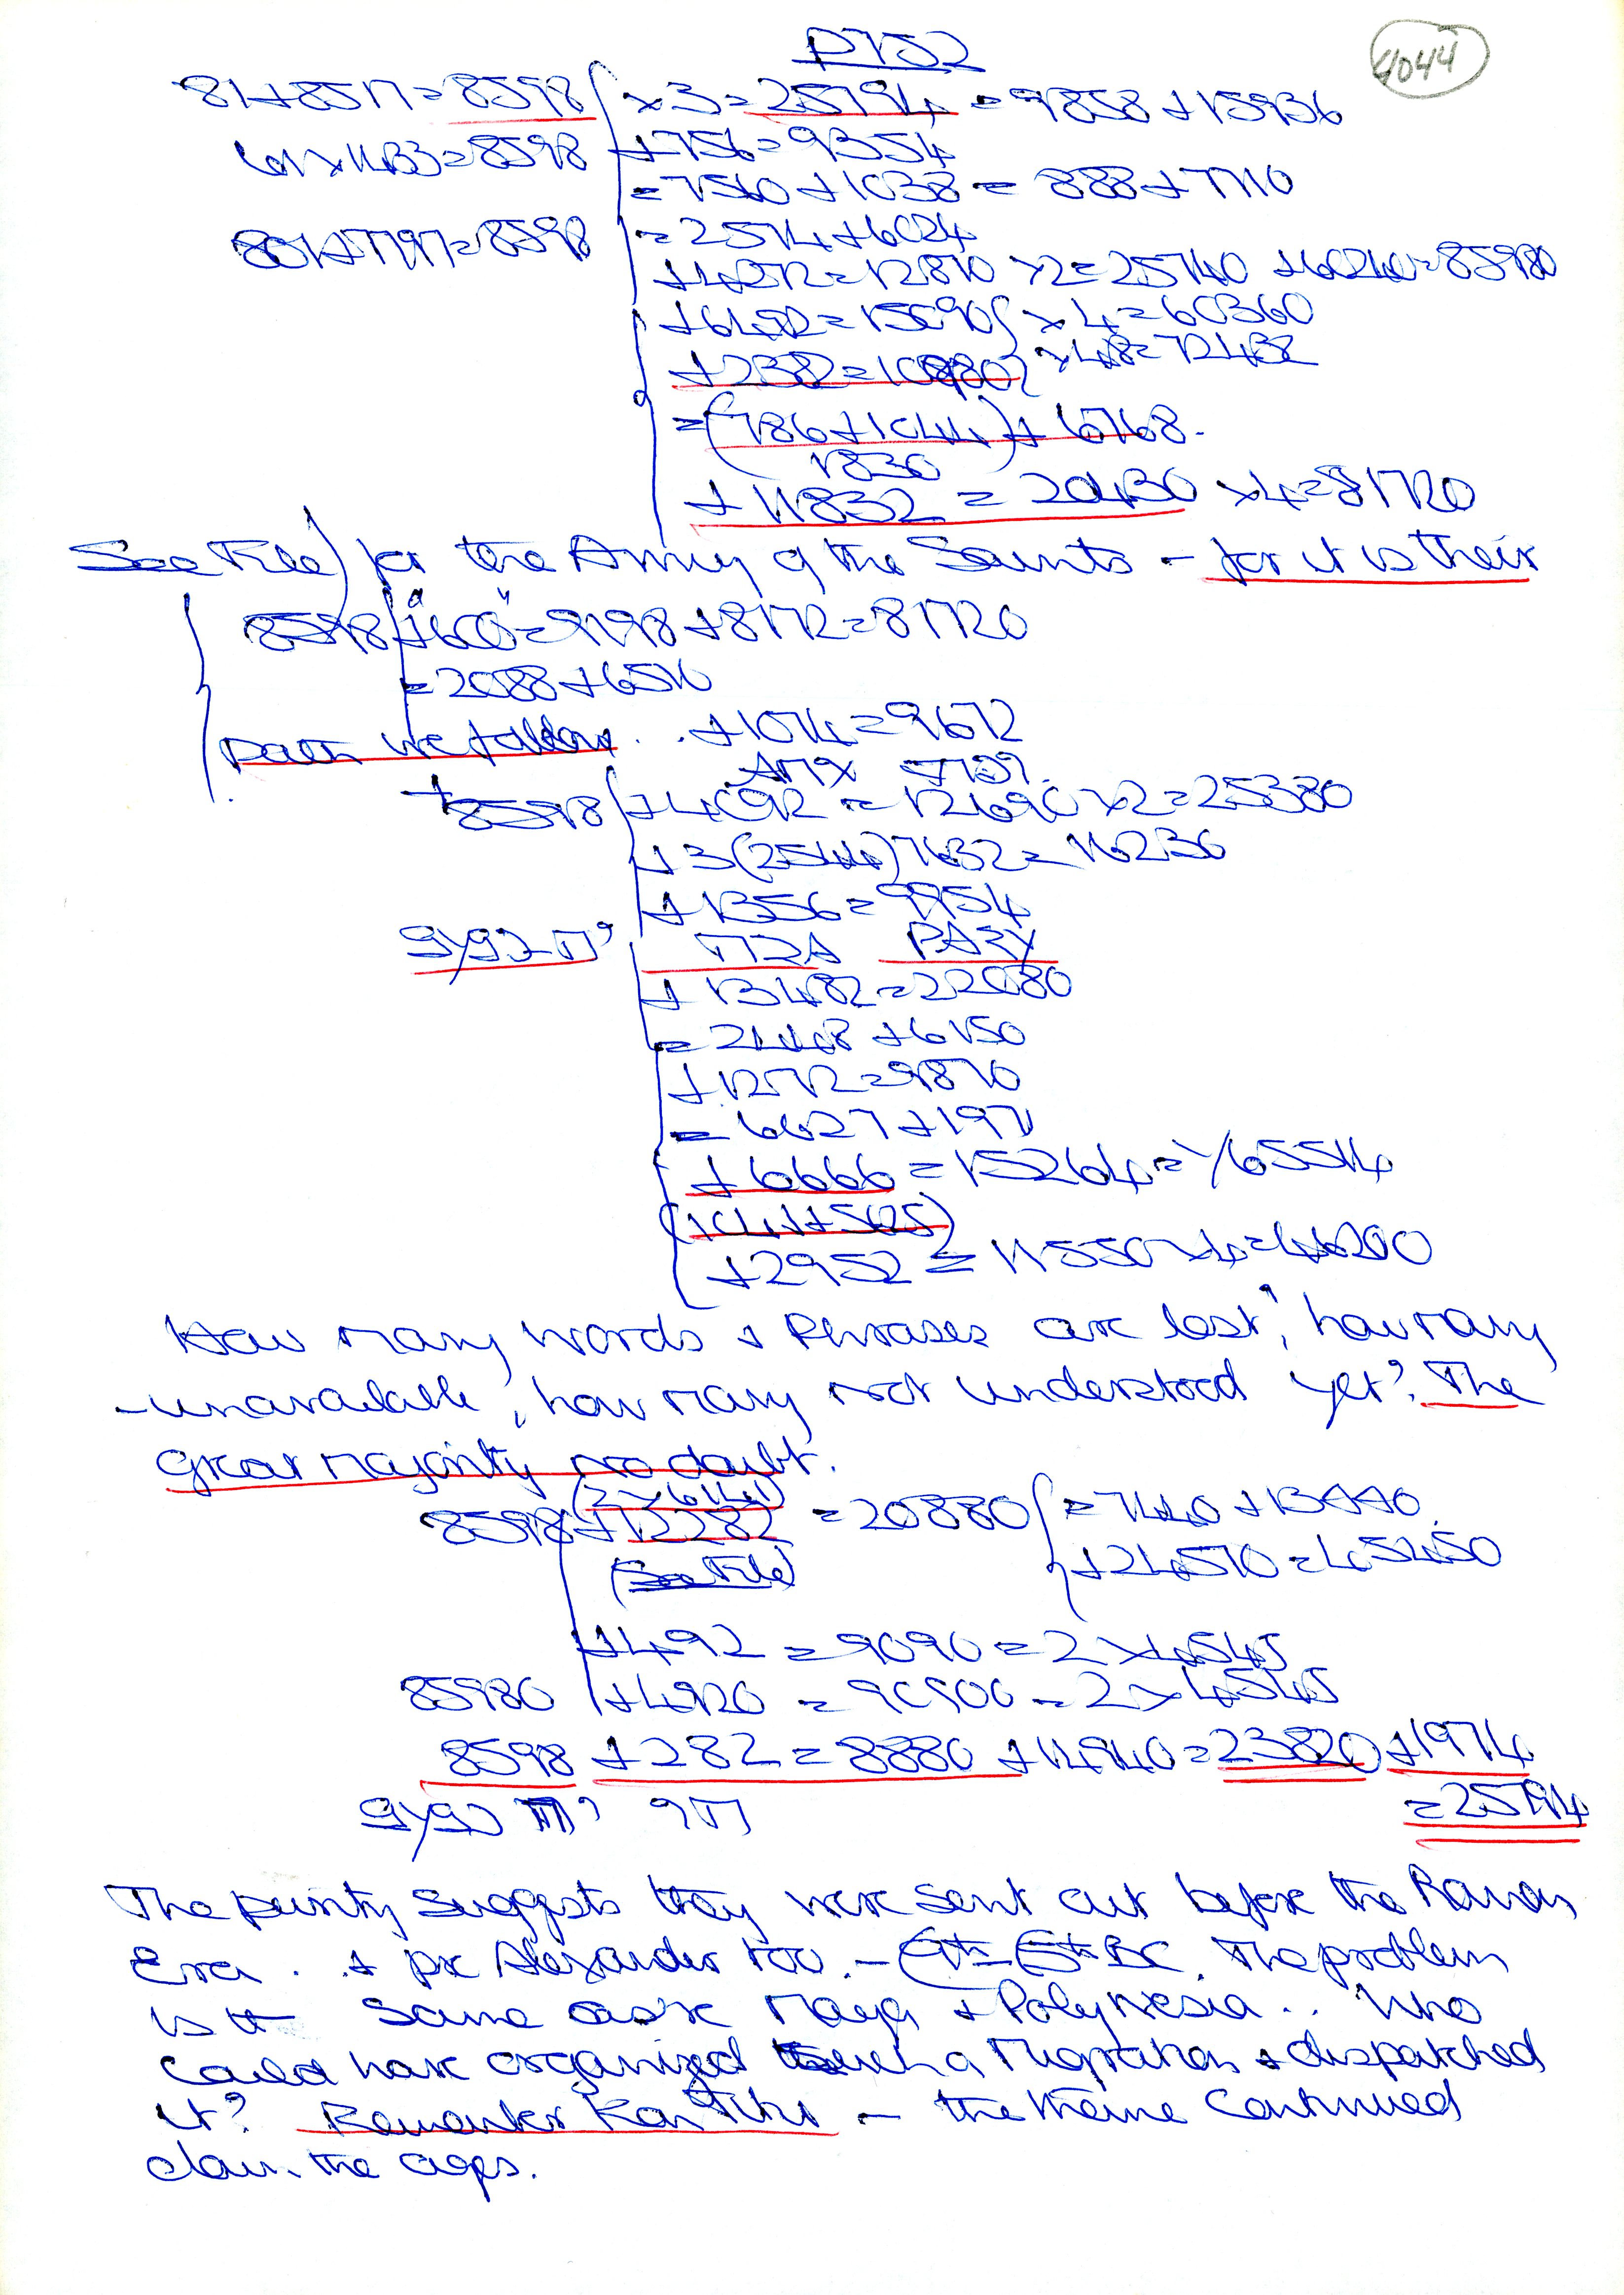 P152
4044
81+8517=8598 ×3=25794=9858+15936
+756=9354
=7560+1038=888+7710
801+7797=8598 =2574+6024
+4272=12870 ×2=25740 +60240=85980
+6492=15090 ×4=60360
+2382=10980 ×48=72432
=(786+1044)+6768.
1830
+11832=20430 ×4=81720
See File) for the Army of the Saints - for it is their
8598+600=9198+8172=81720
=2088+6510
path we follow.. +1074=9672
+8598 +4092=12690×2=25380
+3(2544)7632=16230
+1356=9954
+13482=22080
=2448+6150
+1272=9870
=6627+1971
+6666=15264=
+2952=11550×4=46200
How many words & Phrases are lost; how many
-unavailable; how many not understood yet? The
great majority no doubt.
(2×6141)
8598+12282=20880 =7440+13440.
(See File) +24570=45450
+492=9090=2×4545
85980 +4920=90900=2×4545
8598+282=8880+14940=23820+1974
=25794
The purity suggests they were sent out before the Roman
Era.. & pre Alexander too.- BC. The problem
is the same as in Maya & Polynesia.. Who
could have organized such a Migration & dispatched
it? Remember Kon Tiki - the theme continued
down the ages.